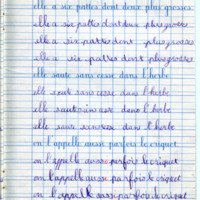 elle a six pattes dont deux plus grosses
elle a six pattes dont deux plus grosses
elle a six pattes dont plus grosses
elle a six pattes dont plus grosses
elle saute sans cesse dans l'herbe
elle saut sans cesse dans l'herbe
elle saut sans cesse dans l'herbe
on l'appelle aussi parfois le criquet
on l'appelle aussi parfois le criquet
on l'appelle aussi parfois le criquet
on l'appelle aussi parfois le criquet